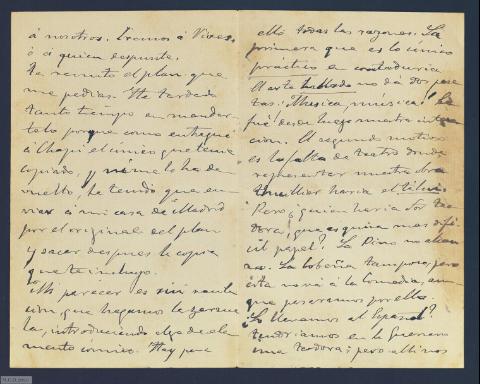 á nosotros. Iremos á Vives,
ó á quien despunte.
Te remito el plan, que
me pedias. He tardado
tanto tiempo en mandar-
telo porque como entregué
á Chapí el único que tenía
copiado, y no me lo ha de-
vuelto, he tenido que en-
viar á mi casa de Madrid
por el original del plan
y sacar despues la copia
que te incluyo.
Mi parecer es sin
que hagamos la zarzue-
la, introduciendo algo de ele-
mento cómico. Hay para
ello todas las razones. La
primera que es lo único
práctico en contaduria
El arte hablado no dá dos pese-
tas. ¡Musica, música! Esa
fué desde luego nuestra inten-
cion. El segundo motivo
es la falta de teatro donde
representar nuestra obra
Thuillier haria el
Pero ¿quien haria la Teo-
dora, que es quizá mas difí-
cil papel? La Pino no alcan-
za. La Cobeña tampoco, pero
ésta no vá á la Comedia, aun-
que pasaramos por ella.
¿Lo llevamos al Español?
Tendriamos en la Guerrero
una Teodora; pero allí nos